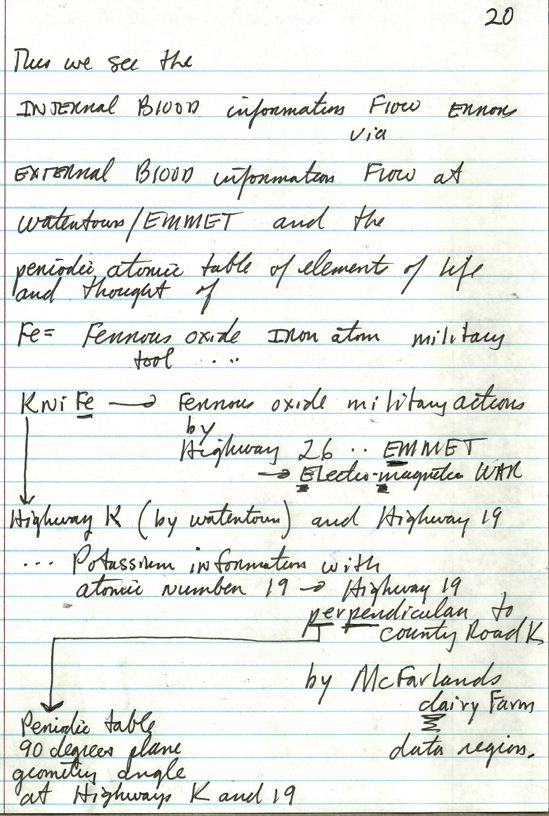 20
Thus we see the
INTERNAL BLOOD information Flow Errors
via
EXTERNAL BLOOD information Flow at
watertown/EMMET and the
periodic atomic table of element of life
and thought of
Fe= Ferrous oxide Iron atom military
tool ...
KNiFe → Ferrous oxide military actions
by
Highway 26 .. EMMET
→ Electro-magnetic WAR
Highway K (by watertown) and Highway 19
... Potassium information with
atomic number 19 → Highway 19
perpendicular to
county Road K
by McFarlands
dairy Farm
data region.
Periodic table
90 degrees plane
geometry angle
at Highways K and 19